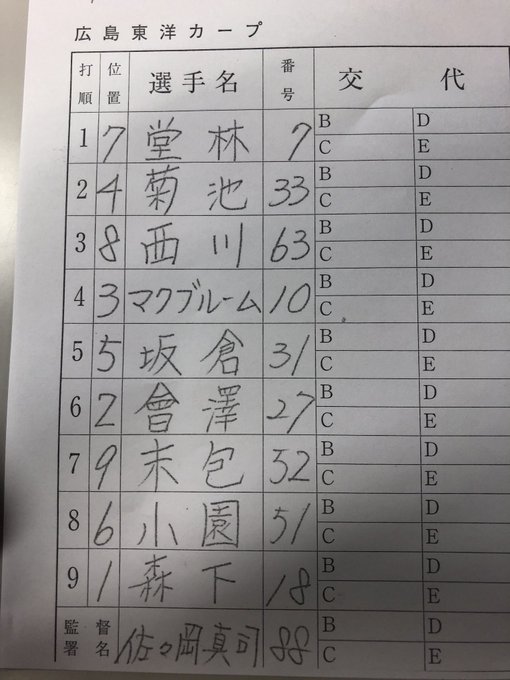 広島東洋カープ
打順 位置 選手名 番号 交代
1 7 堂林 7 B D C E
2 4 菊池 33 B D C E
3 8 西川 63 B D C E
4 3 マクブルーム 10 B D C E
5 5 坂倉 31 B D C E
6 2 會澤 27 B D C E
7 9 末包 52 B D C E
8 6 小園 51 B D C E
9 1 森下 18 B D C E
監督署名 佐々岡真司 88 B D C E